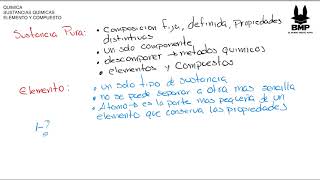 QUIMICA
SUSTANCIAS QUIMICAS
ELEMENTO Y COMPUESTO
BMP
Sustancia Pura:
• Composicion fija, definida, propiedades
distintivas
• un solo componente
• descomponer → metodos quimicos
• elementos y Compuestos
Elemento:
• un solo tipo de sustancia
• no se puede separar a otra mas sencilla
• Atomo → es la parte mas pequeña de un
elemento que conserva las propiedades